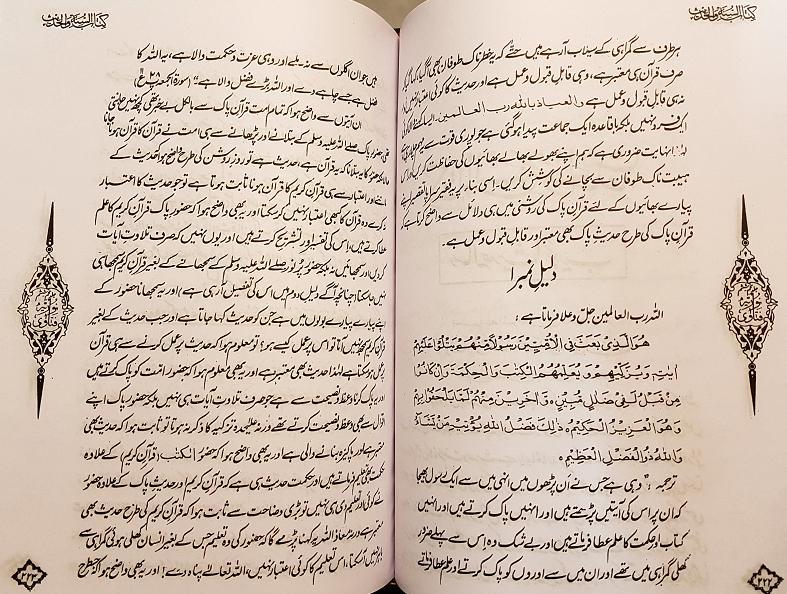 کتاب السنۃ والحدیث
ہر طرف سے گمراہی کے سیلاب آرہے ہیں حتّٰی کہ یہ خطرناک طوفان بھی آگیا کہ
صرف قرآن ہی معتبر ہے، وہی قابلِ قبول و عمل ہے اور حدیث کا کوئی اعتبار نہیں
نہ ہی قابلِ قبول و عمل ہے والعیاذ باللہ رب العالمین۔
ایک فرد نہیں بلکہ باقاعدہ ایک جماعت پیدا ہوگئی ہے جو پوری قوت سے
لہٰذا نہایت ضروری ہے کہ ہم اپنے بھولے بھالے بھائیوں کی حفاظت کریں اور اس
ہیبت ناک طوفان سے بچانے کی کوشش کریں۔ اسی بنا پر یہ فقیر سراپا تقصیر اپنے
پیارے بھائیوں کے لئے قرآن پاک کی روشنی میں ہی دلائل سے واضح کرتا ہے کہ
قرآن پاک کی طرح حدیث پاک بھی معتبر اور قابلِ قبول و عمل ہے۔
دلیل نمبر ۱
اللہ رب العالمین جل و علا فرماتا ہے:
هُوَ الَّذِیْ بَعَثَ فِی الْاُمِّیّٖنَ رَسُوْلًا مِّنْهُمْ یَتْلُوْا عَلَیْهِمْ
اٰیٰتِهٖ وَیُزَكِّیْهِمْ وَیُعَلِّمُهُمُ الْكِتٰبَ وَالْحِكْمَةَ وَاِنْ كَانُوْا
مِنْ قَبْلُ لَفِیْ ضَلٰلٍ مُّبِیْنٍ ۙ وَّاٰخَرِیْنَ مِنْهُمْ لَمَّا یَلْحَقُوْا بِهِمْ
وَهُوَ الْعَزِیْزُ الْحَكِیْمُ ۙ ذٰلِكَ فَضْلُ اللّٰهِ یُؤْتِیْهِ مَنْ یَّشَآءُ
وَاللّٰهُ ذُو الْفَضْلِ الْعَظِیْمِ ۙ
ترجمہ: "وہی ہے جس نے ان پڑھوں میں انہی میں سے ایک رسول بھیجا
کہ ان پر اس کی آیتیں پڑھتے ہیں اور انہیں پاک کرتے ہیں اور انہیں
کتاب اور حکمت کا علم عطا فرماتے ہیں اور بے شک وہ اس سے پہلے ضرور
کھلی گمراہی میں تھے اور ان میں سے اوروں کو پاک کرتے اور علم عطا فرماتے
۲۲۲
کتاب السنۃ والحدیث
ہیں جو ان اگلوں سے نہ ملے اور وہی عزت و حکمت والا ہے، یہ اللہ کا
فضل ہے جسے چاہے دے اور اللہ بڑے فضل والا ہے" (سورۃ الجمعہ پ ۲۸)
ان آیتوں سے واضح ہوا کہ تمام امت قرآن پاک سے بالکل بے خبر تھی کچھ نہیں جانتی
تھی حضور پاک صلے اللہ علیہ وسلم کے بتلانے اور پڑھانے سے ہی امت نے قرآن کا قرآن ہونا جانا
بتلانا کہ یہ قرآن ہے، حدیث ہے تو روز روشن کی طرح واضح ہوا کہ حدیث کے
ماننے اور اعتبار سے ہی قرآن کریم کا قرآن ہونا ثابت ہوتا ہے تو جو حدیث کا اعتبار
نہ کرے وہ قرآن کا بھی اعتبار نہیں کر سکتا اور یہ بھی واضح ہوا کہ حضور پاک قرآن کریم کا علم
عطا کرتے ہیں، اس کی تفسیر اور تشریح کرتے ہیں اور یوں نہیں کہ صرف تلاوتِ آیات
کریں اور سمجھائیں نہ بلکہ حضور پُر نور صلے اللہ علیہ وسلم کے سمجھانے کے بغیر قرآن کریم سمجھا ہی
نہیں جا سکتا چنانچہ آگے دلیل دوم میں اس کی تفصیل آرہی ہے اور یہ سمجھانا حضور کے
اپنے پیارے پیارے بولوں میں ہے جن کو حدیث کہا جاتا ہے اور جب حدیث کے بغیر
قرآن کریم سمجھ نہیں آتا تو اس پر عمل کیسے ہو؟ تو معلوم ہوا کہ حدیث پر عمل کرنے سے ہی قرآن
پر عمل ہو سکتا ہے لہٰذا حدیث بھی معتبر ہے اور یہ بھی معلوم ہوا کہ حضور امت کو پاک کرتے ہیں
اور یہ پاک کرنا وعظ و نصیحت سے ہے جو صرف تلاوتِ آیات ہی نہیں بلکہ حضور پاک اپنے
اقوال سے بھی وعظ و نصیحت کرتے تھے ورنہ علیحدہ تزکیہ کا ذکر نہ ہوتا تو ثابت ہوا کہ حدیث بھی
معتبر ہے اور پاکیزہ بنانے والی ہے اور یہ بھی واضح ہوا کہ حضور الکتٰب (قرآن کریم) کے علاوہ
حکمت کی بھی تعلیم فرماتے ہیں اور حکمت حدیث ہی ہے کہ قرآن کریم اور حدیث پاک کے علاوہ حضور
نے کوئی اور تعلیم دی ہی نہیں تو بڑی وضاحت سے ثابت ہوا کہ قرآن کریم کی طرح حدیث بھی
معتبر ہے ورنہ معاذ اللہ یہ کہنا پڑے گا کہ حضور کی وہ تعلیم جس کے بغیر انسان کھلی ہوئی گمراہی سے
باہر نہیں آسکتا، اس تعلیم کا کوئی اعتبار نہیں، اللہ تعالےٰ پناہ دے! اور یہ بھی واضح ہوا کہ جس طرح
۲۲۳